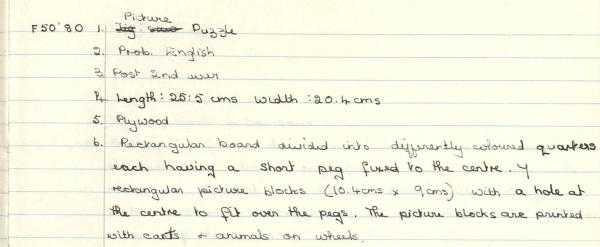 Picture
F50'80 1. Jig saw Puzzle
2. Prob. English
3. Post 2nd war
4. Length: 25.5 cms width: 20.4cms
5. Plywood
6. Rectangular board divided into differently coloured quarters
each having a short peg fixed to the centre. 4
rectangular picture blocks (10.4cms x 9cms) with a hole at
the centre to fit over the pegs. The picture blocks are printed
with carts + animals on wheels.